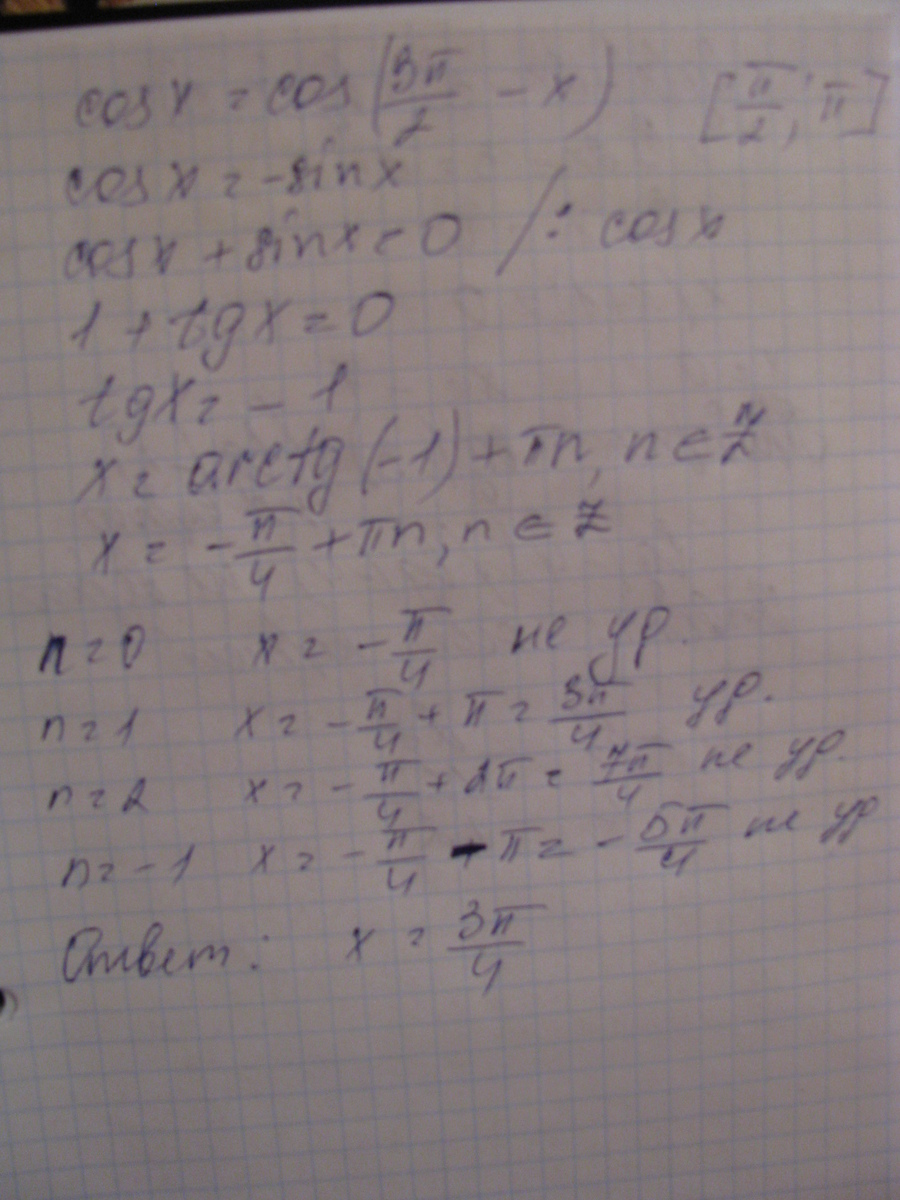 cos x = cos(3π/2 - x) [π/2; π]
cos x = -sin x
cos x + sin x = 0 /: cos x
1 + tg x = 0
tg x = -1
x = arctg(-1) + πn, n ∈ Z
x = -π/4 + πn, n ∈ Z
n = 0 x = -π/4 не ур.
n = 1 x = -π/4 + π = 3π/4 ур.
n = 2 x = -π/4 + 2π = 7π/4 не ур.
n = -1 x = -π/4 - π = -5π/4 не ур
Ответ: x = 3π/4